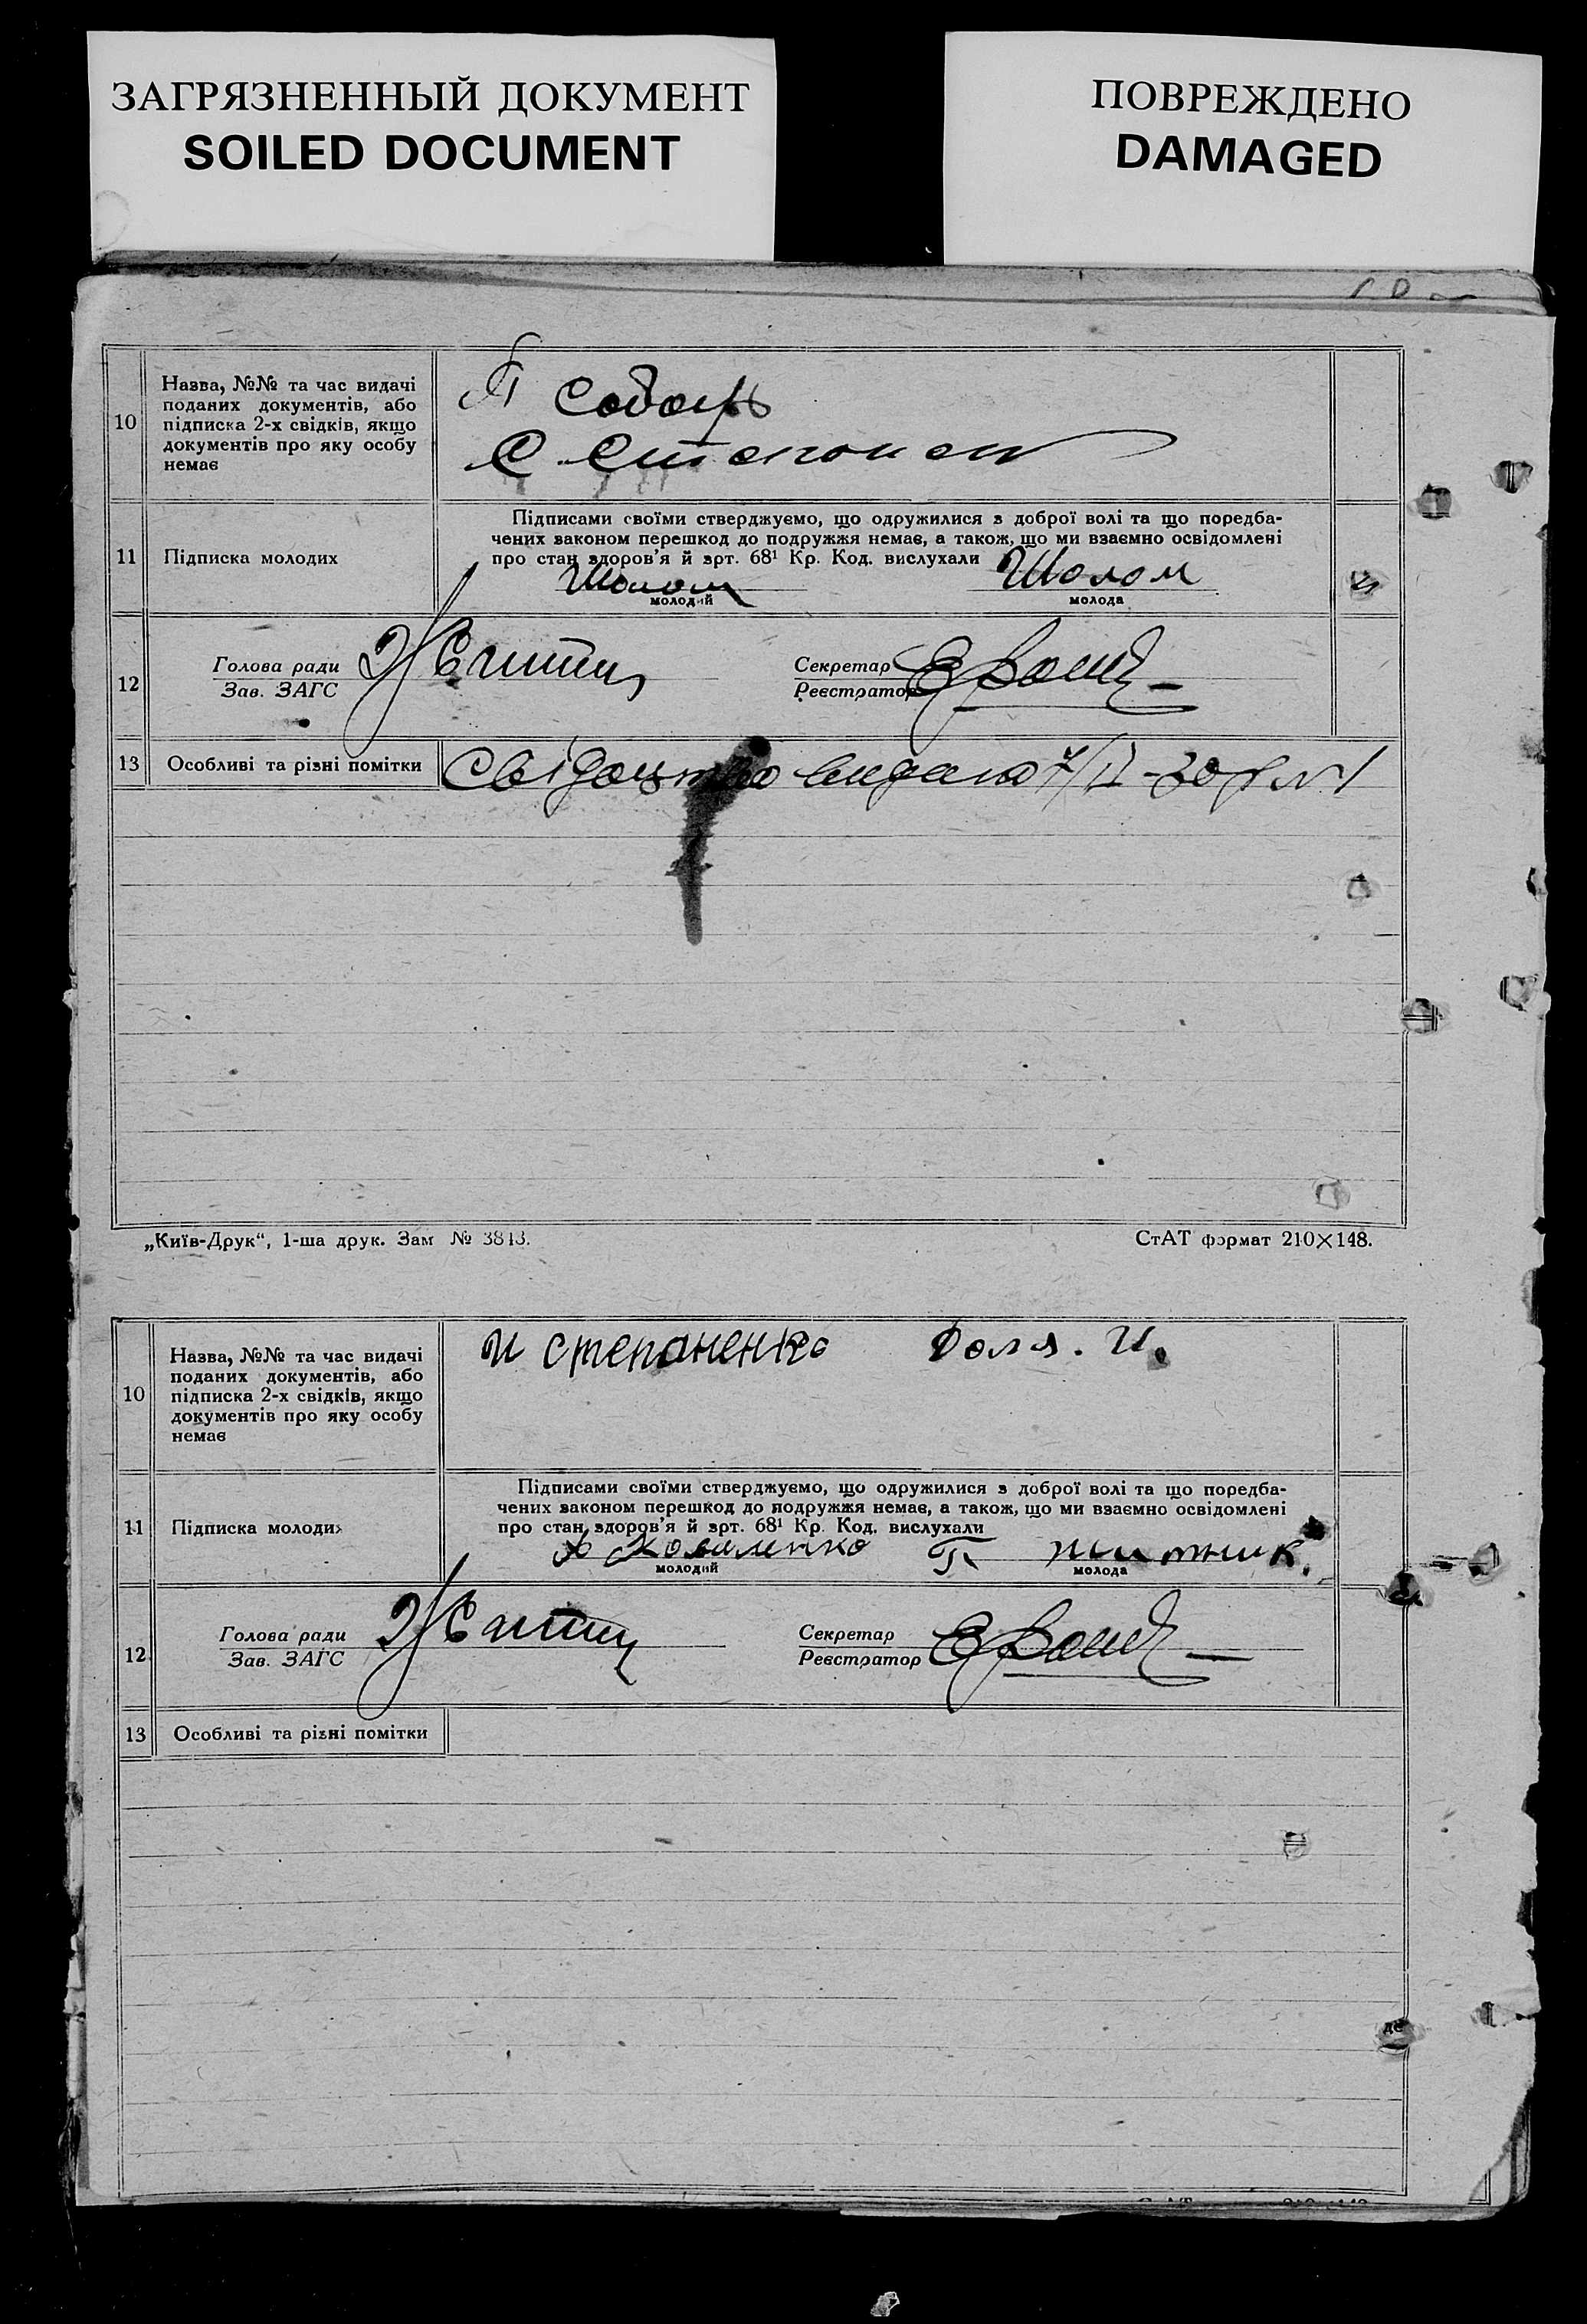 ЗАГРЯЗНЕННЫЙ ДОКУМЕНТ
SOILED DOCUMENT
ПОВРЕЖДЕНО
DAMAGED
10
Назва, №№ та час видачі
поданих документів, або
підписка 2-х свідків, якщо
документів про яку особу
немає
11
Підписка молодих
Підписами своїми стверджуємо, що одружилися з доброї волі та що поредба-
чених законом перешкод до подружжя немає, а також, що ми взаємно освідомлені
про стан здоров'я й арт. 68¹ Кр. Код. вислухали
Шолом
Шолом
молодий
молода
12
Голова ради
Зав. ЗАГС
Секретар
Реєстратор
13
Особливі та різні помітки
Свідоцтво видано 7/II-30 р № 1
„Київ-Друк“, 1-ша друк. Зам № 3813.
СтАТ формат 210×148.
10
Назва, №№ та час видачі
поданих документів, або
підписка 2-х свідків, якщо
документів про яку особу
немає
И степаненко Доля. И.
11
Підписка молодих
Підписами своїми стверджуємо, що одружилися з доброї волі та що поредба-
чених законом перешкод до подружжя немає, а також, що ми взаємно освідомлені
про стан здоров'я й арт. 68¹ Кр. Код. вислухали
Коваленко
молодий
молода
12
Голова ради
Зав. ЗАГС
Секретар
Реєстратор
13
Особливі та різні помітки
де